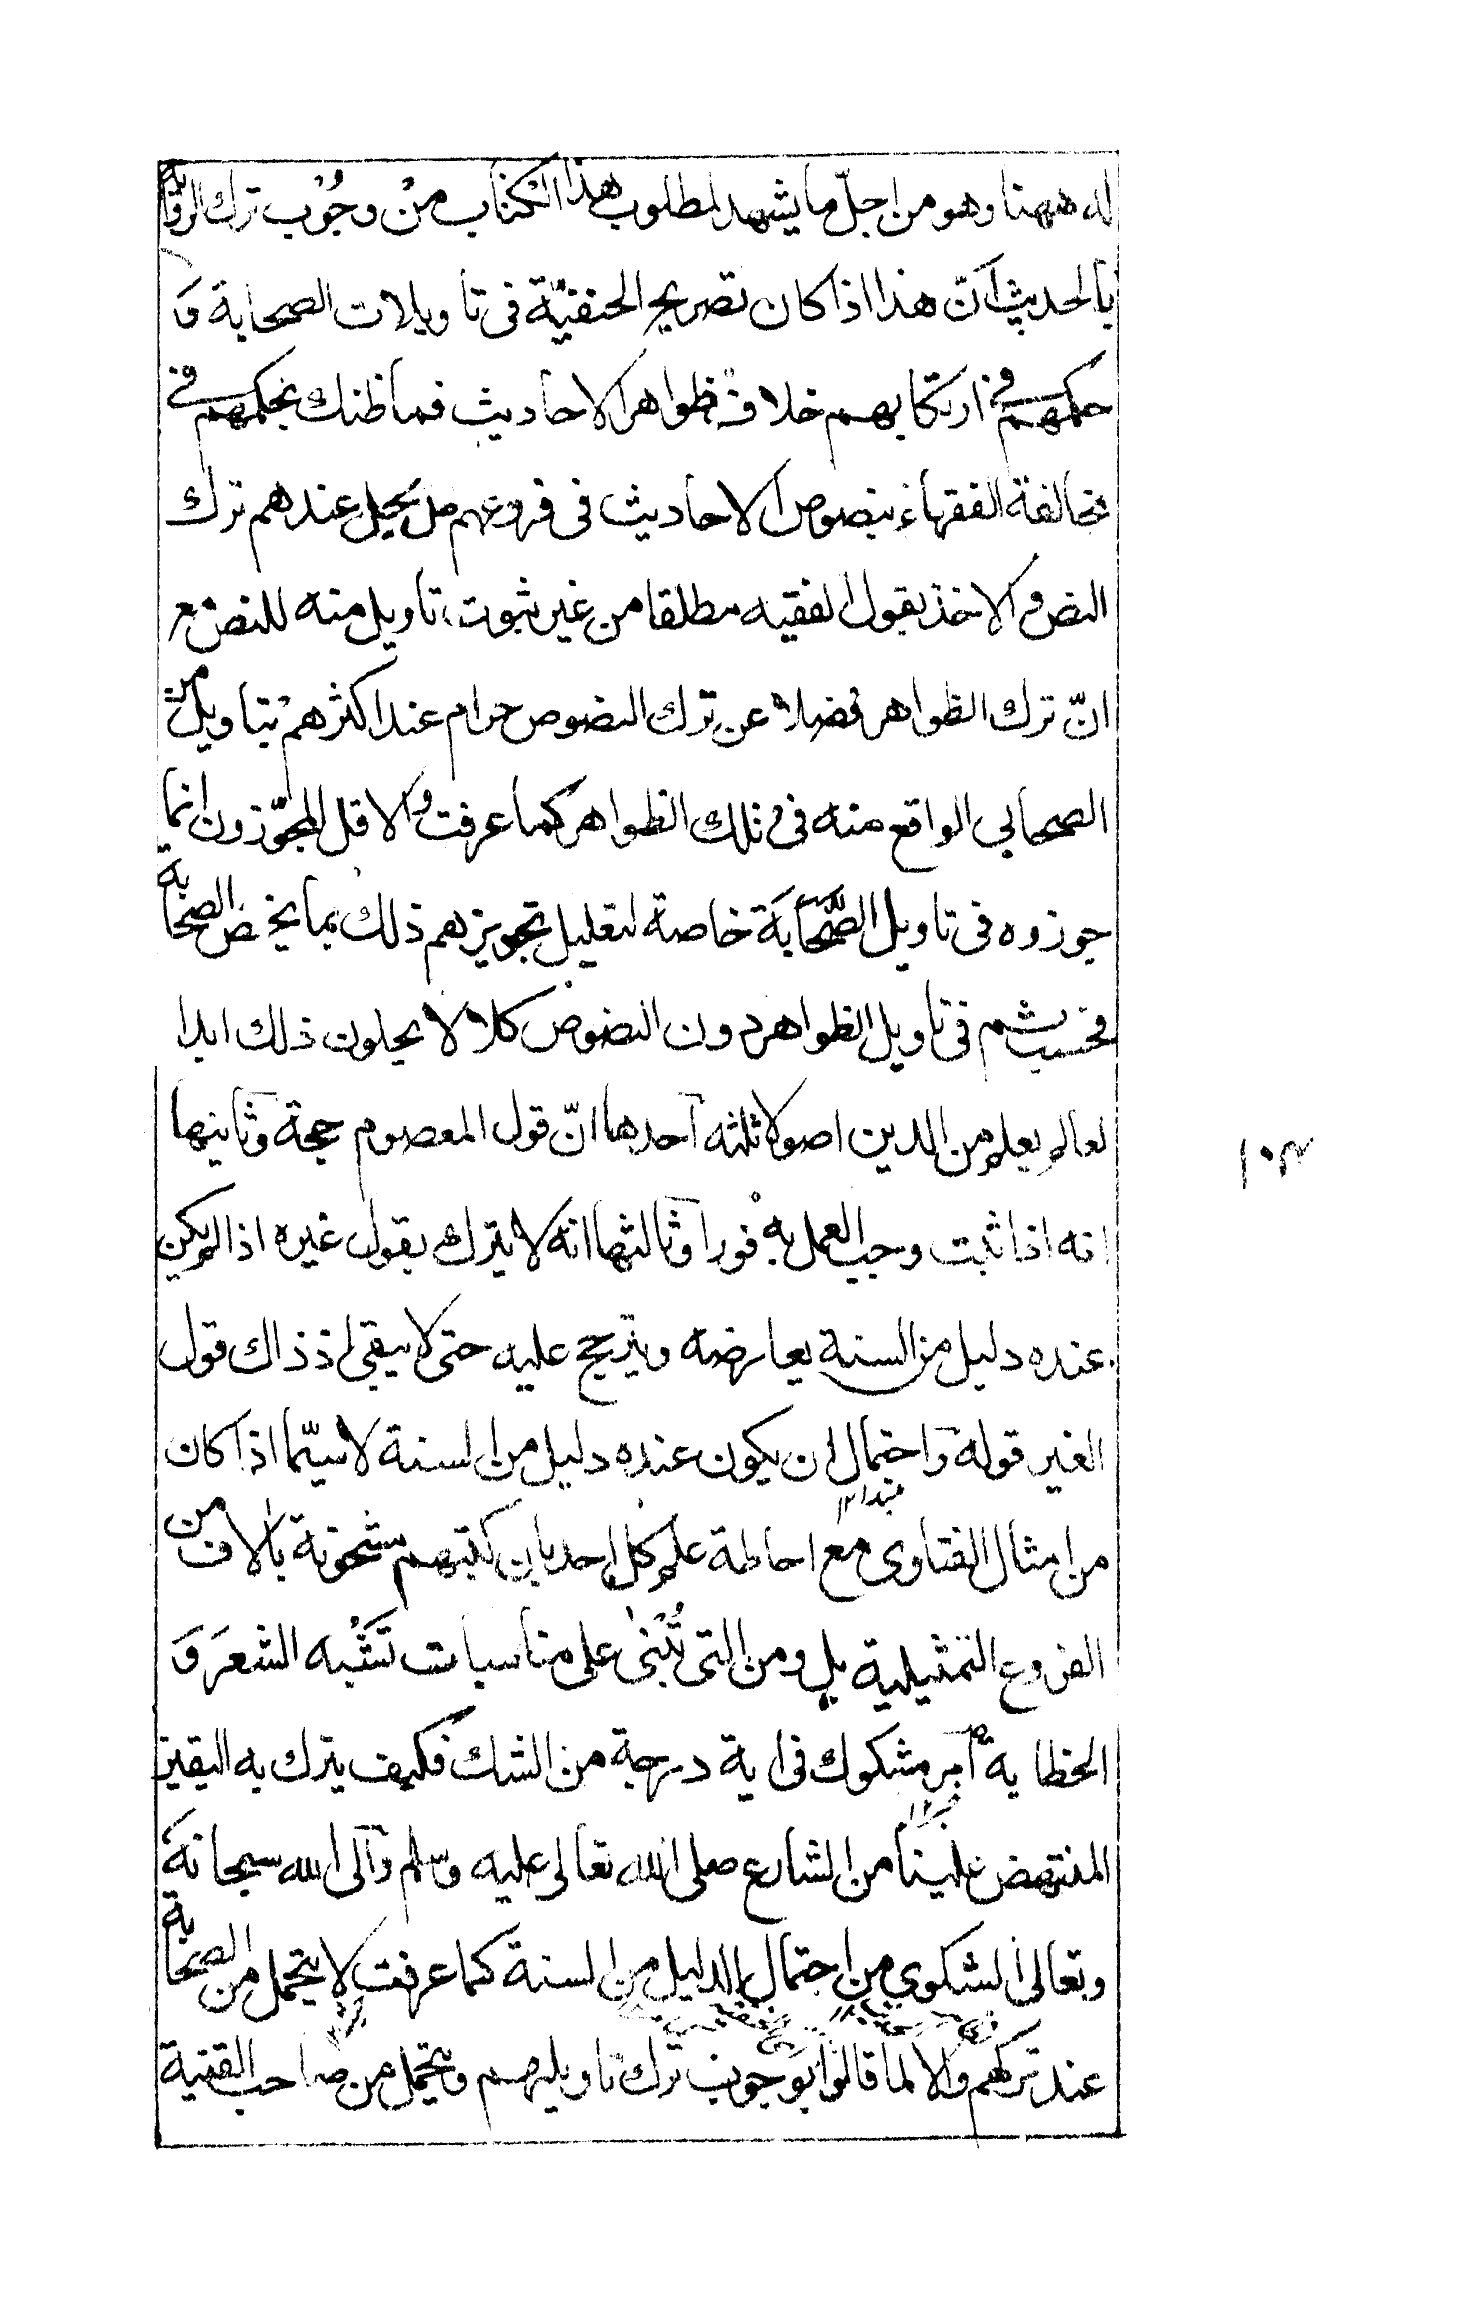 له ههنا وهو من اجلّ ما يشهد لمطلوب هذا الكتاب منْ وجُوْب ترك الرواية
بالحديث انّ هذا اذا كان تصريح الحنفيّة فى تاويلات الصحابة وَ
حكمهم فى ارتكابهم خلاف ظواهر الاحاديث فما ظنك بحكمهم فى
مخالفة الفقهاء بنصوص الاحاديث فى فروعهم هل يحل عندهم ترك
النص والاخذ بقول الفقيه مطلقا من غير ثبوت تاويل منه للنص مع
انّ ترك الظواهر فضلا عن ترك النصوص حرام عند اكثرهم بتاويل من
الصحابى الواقع منه فى تلك الظواهر كما عرفت والاقل المجوّزون انما
جوزوه فى تاويل الصَّحَابَة خاصة لتعليل تجويزهم ذلك بما يخص الصحابة
فحسب ثم فى تاويل الظواهر دون النصوص كلا لا يحلون ذلك ابدا
لعالم يعلم من الدين اصولا ثلثه احدها انّ قول المعصوم حجة وثانيها
انه اذا ثبت وجب العمل به فورا وثالثها انه لا يترك بقول غيره اذا لم يكن
عنده دليل من السنة يعارضه ويترجح عليه حتى لا يبقى اذ ذاك قول
الغير قوله واحتمال ان يكون عنده دليل من السنة لا سيّما اذا كان
مبتدا ١٢
من امثال الفتاوى مع احاطة علم كل احد بان كتبهم مشحونة بالاف من
الفروع التمثيلية بل ومن التى تُبْنىٰ على مناسبات تَشْبُه الشعرَ وَ
الخطابة امر مشكوك فى اية درجة من الشك فكيف يترك به اليقين
خبر ١٢
المنتهض علينا من الشارع صلى الله تعالى عليه وسلم والى الله سبحانه
وتعالى الشكوى من احتمال الدليل من السنة كما عرفت لا يتحمل من الصحابة
عند تركهم والا لما قالوا بوجوب ترك تاويلهم ويتحمل من صاحب القنية